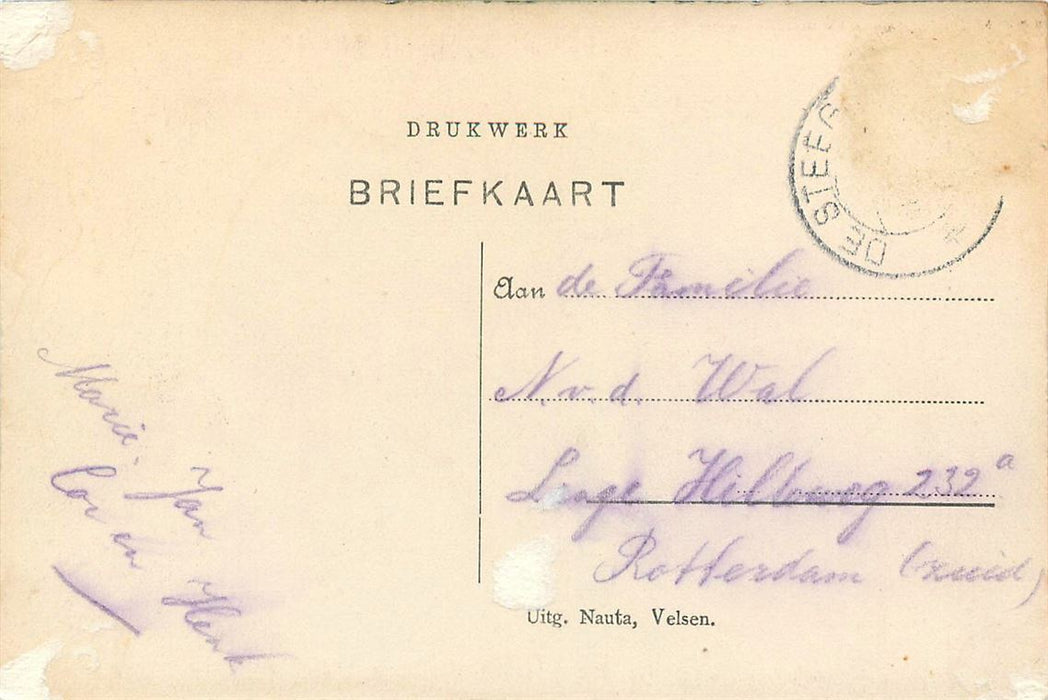 DRUKWERK
BRIEFKAART
DE STEEG
Aan de Familie
N. v. d. Wal
Lange Hilleweg 232a
Rotterdam (zuid)
Marie, Jan
Cor en Henk
Uitg. Nauta, Velsen.